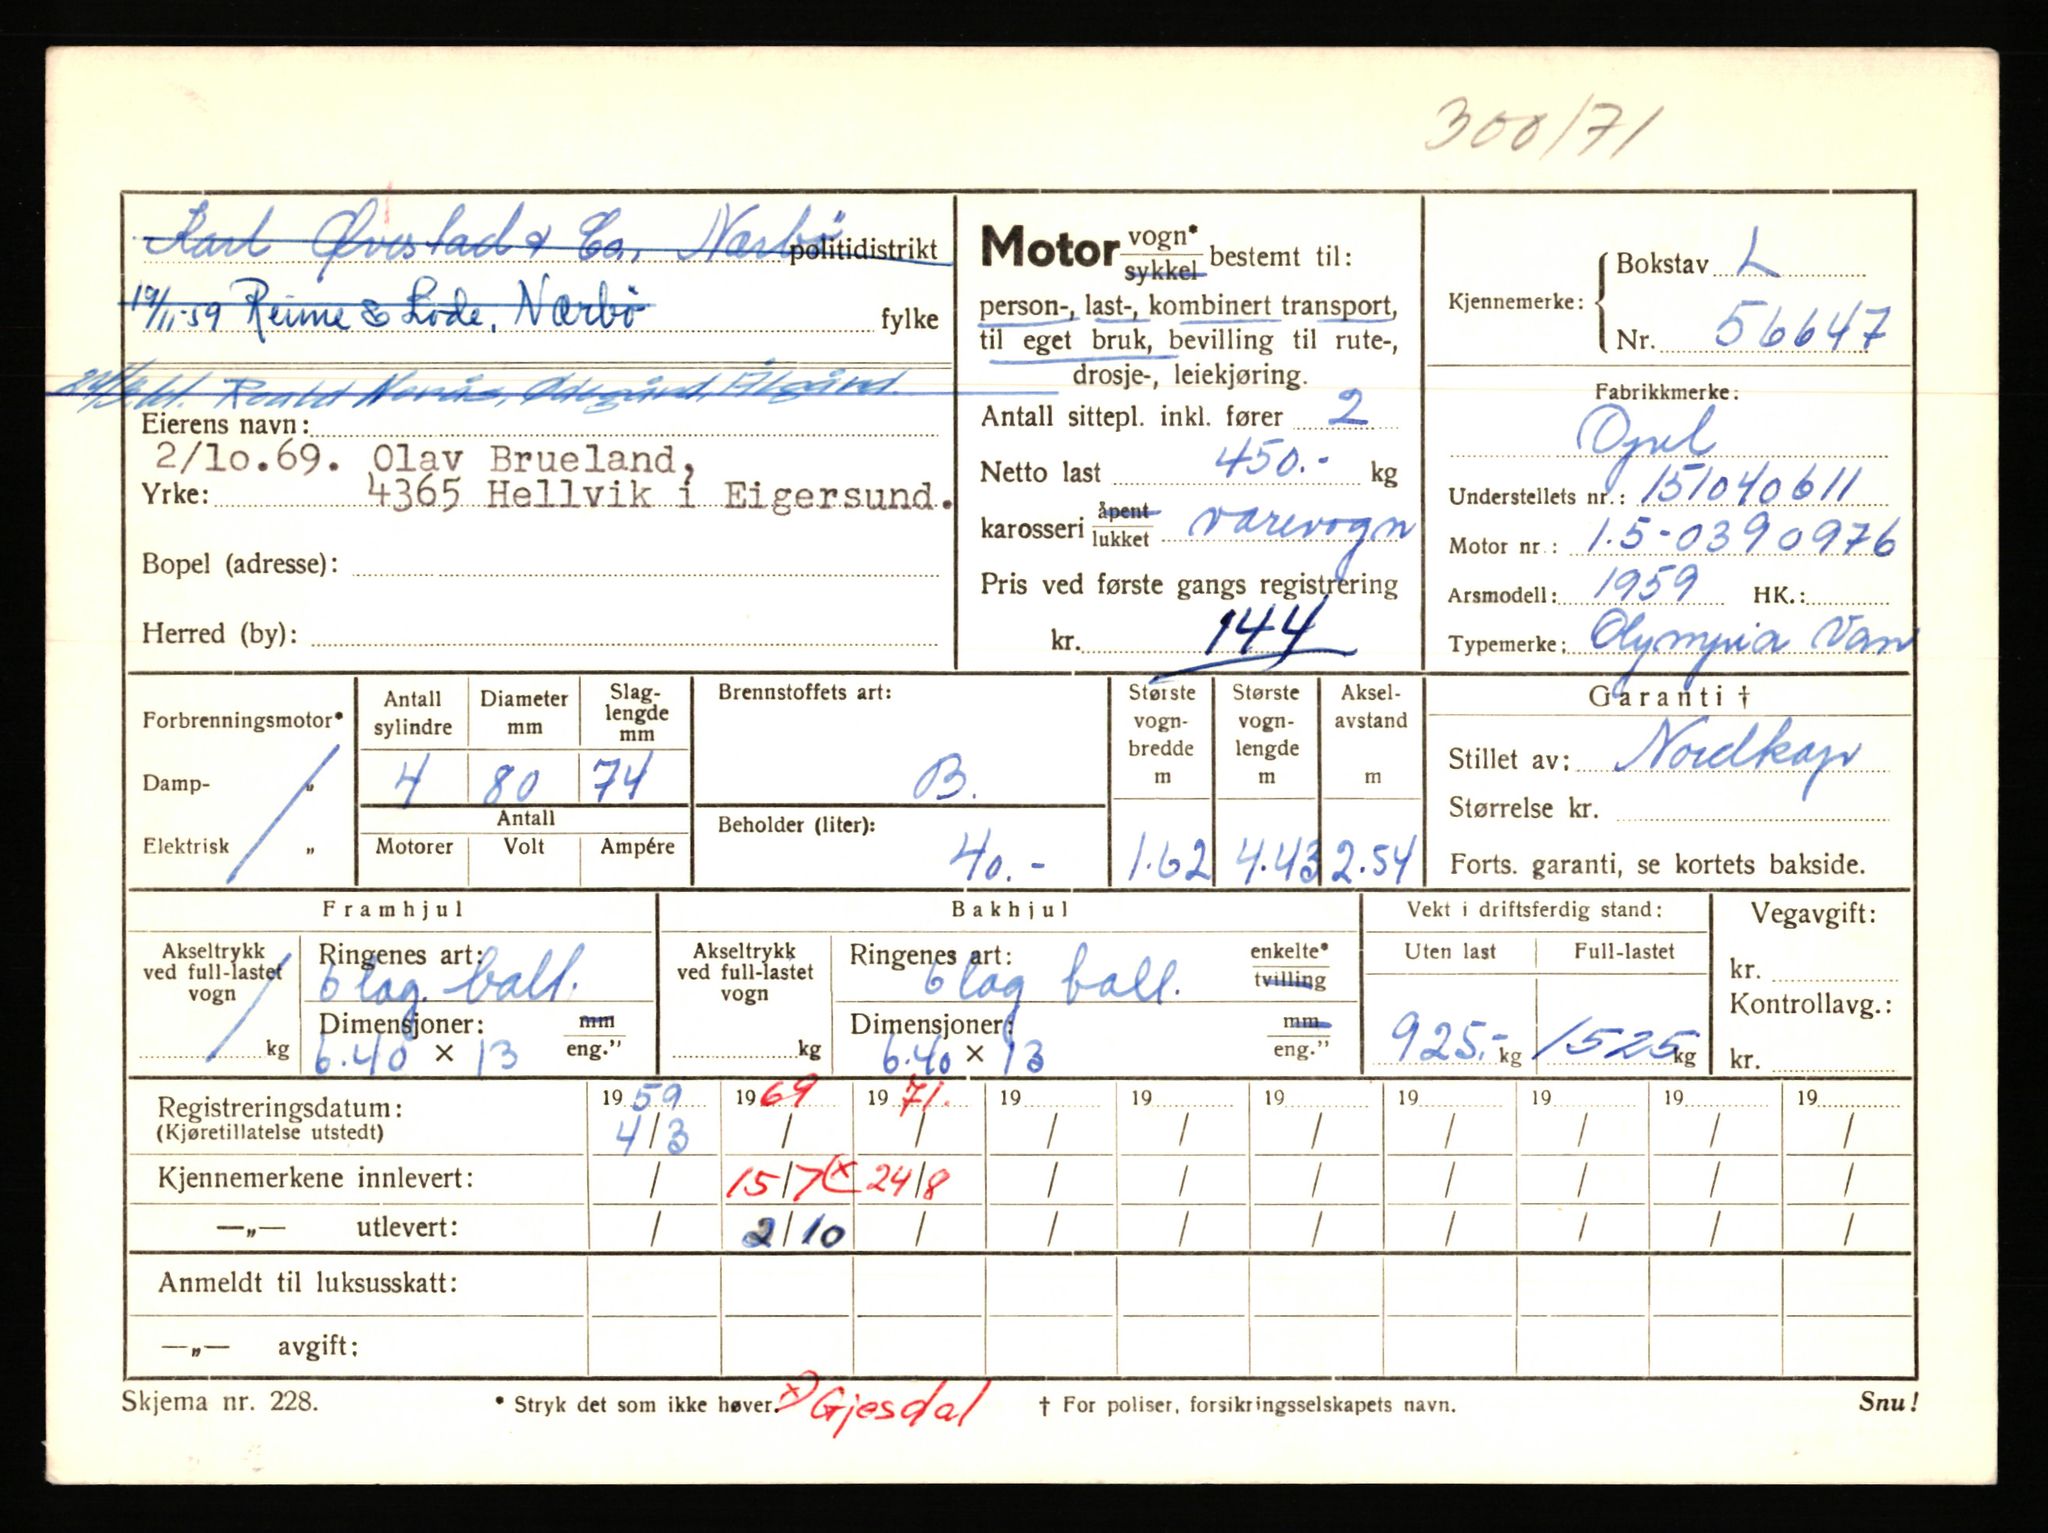 300/71
Karl Øverstad & Co, Nærbö politidistrikt
19/11-59 Reime & Lode, Nærbö fylke
Ålgård.
Eierens navn:
2/10.69. Olav Brueland,
Yrke: 4365 Hellvik i Eigersund.
Bopel (adresse):
Herred (by):
Motor vogn* sykkel bestemt til:
person-, last-, kombinert transport,
til eget bruk, bevilling til rute-,
drosje-, leiekjøring.
Antall sittepl. inkl. fører 2
Netto last 450.- kg
karosseri åpent lukket varevogn
Pris ved første gangs registrering
kr. 144
Kjennemerke: Bokstav L
Nr. 56647
Fabrikkmerke:
Opel
Understellets nr.: 151040611
Motor nr.: 1.5-0390976
Arsmodell: 1959 HK.:
Typemerke: Olympia Van
Forbrenningsmotor*
Damp- "
Elektrisk "
Antall sylindre
4
Diameter mm
80
Slag- lengde mm
74
Antall
Motorer Volt Ampére
Brennstoffets art:
B.
Beholder (liter):
40.-
Største vogn- bredde m
1.62
Største vogn- lengde m
4.43
Aksel- avstand m
2.54
Garanti †
Stillet av: Nordkap
Størrelse kr.
Forts. garanti, se kortets bakside.
Framhjul
Akseltrykk ved full-lastet vogn
kg
Ringenes art:
6 lag ball.
Dimensjoner: mm eng."
6.40 × 13
Bakhjul
Akseltrykk ved full-lastet vogn
kg
Ringenes art: enkelte* tvilling
6 lag ball.
Dimensjoner: mm eng."
6.40 × 13
Vekt i driftsferdig stand:
Uten last Full-lastet
925.- kg 1525 kg
Vegavgift:
kr.
Kontrollavg.:
kr.
Registreringsdatum: 19 59 19 69 19 71. 19 19 19 19 19 19 19
(Kjøretillatelse utstedt) 4/3 / / / / / / / / /
Kjennemerkene innlevert: / 15/7 (x 24/8 / / / / / / /
—„— utlevert: / 2/10 / / / / / / / /
Anmeldt til luksusskatt:
—„— avgift:
Skjema nr. 228. * Stryk det som ikke høver. x) Gjesdal † For poliser, forsikringsselskapets navn. Snu!